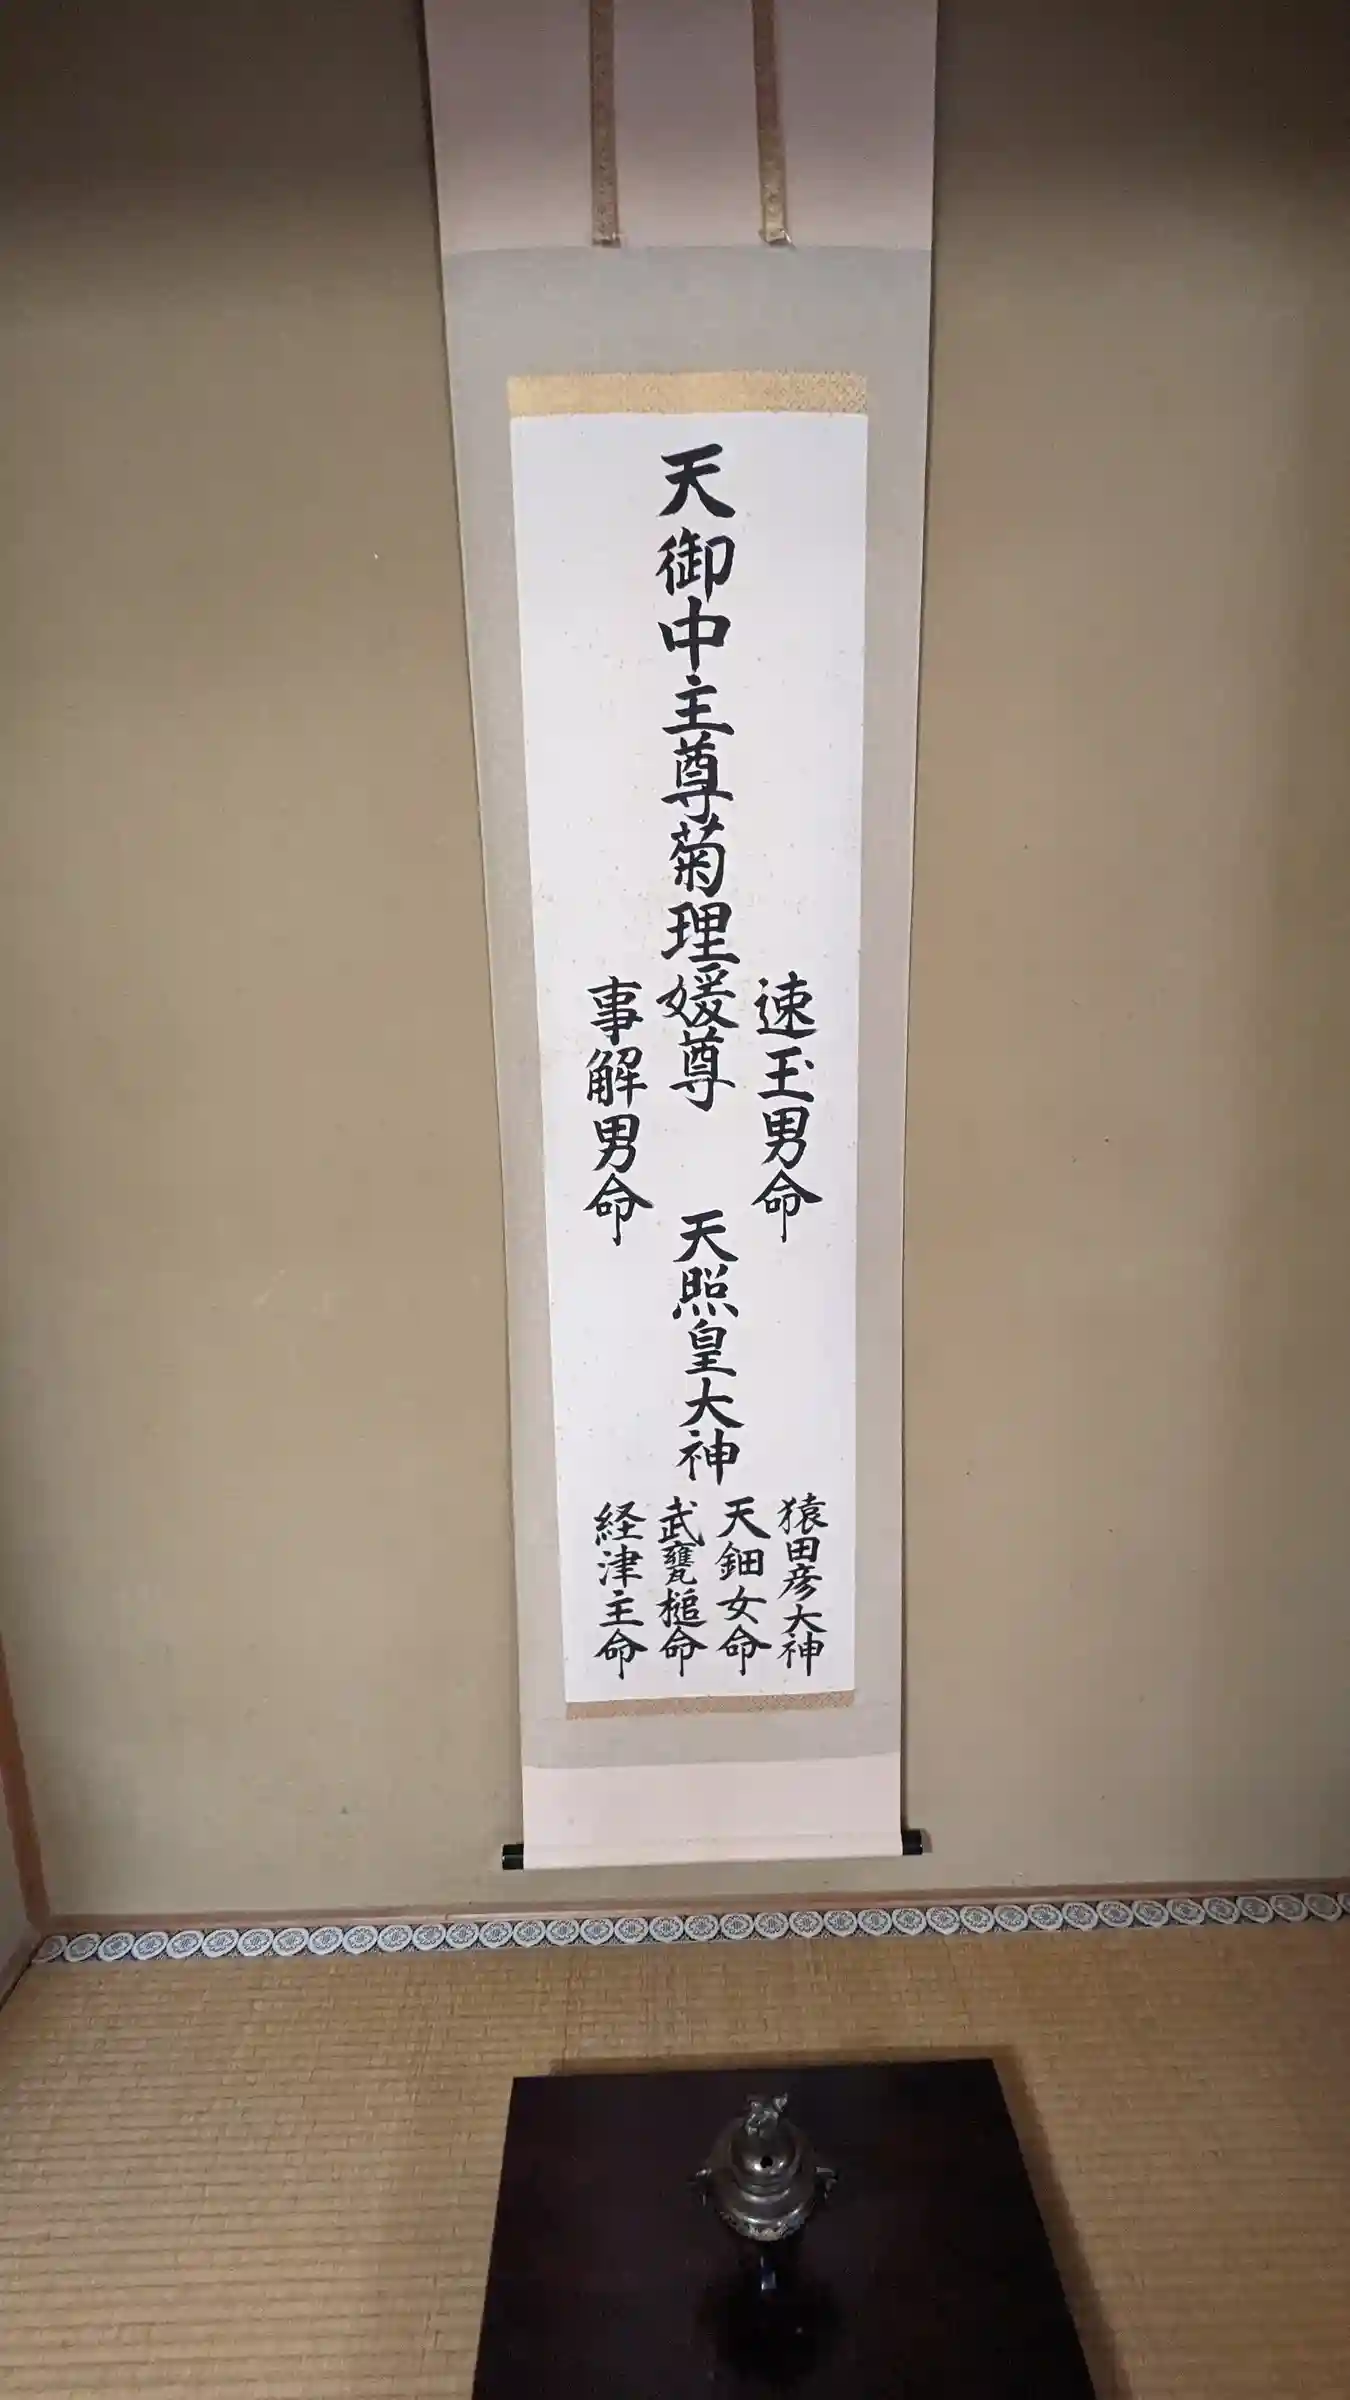 天御中主尊菊理媛尊
速玉男命
事解男命
天照皇大神
猿田彦大神
天鈿女命
武甕槌命
経津主命